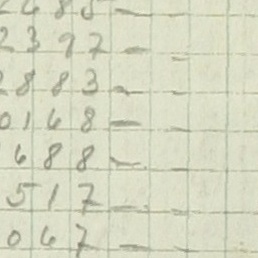 2485 —
2397 —
2883 —
0168 —
688 —
517 —
067 —